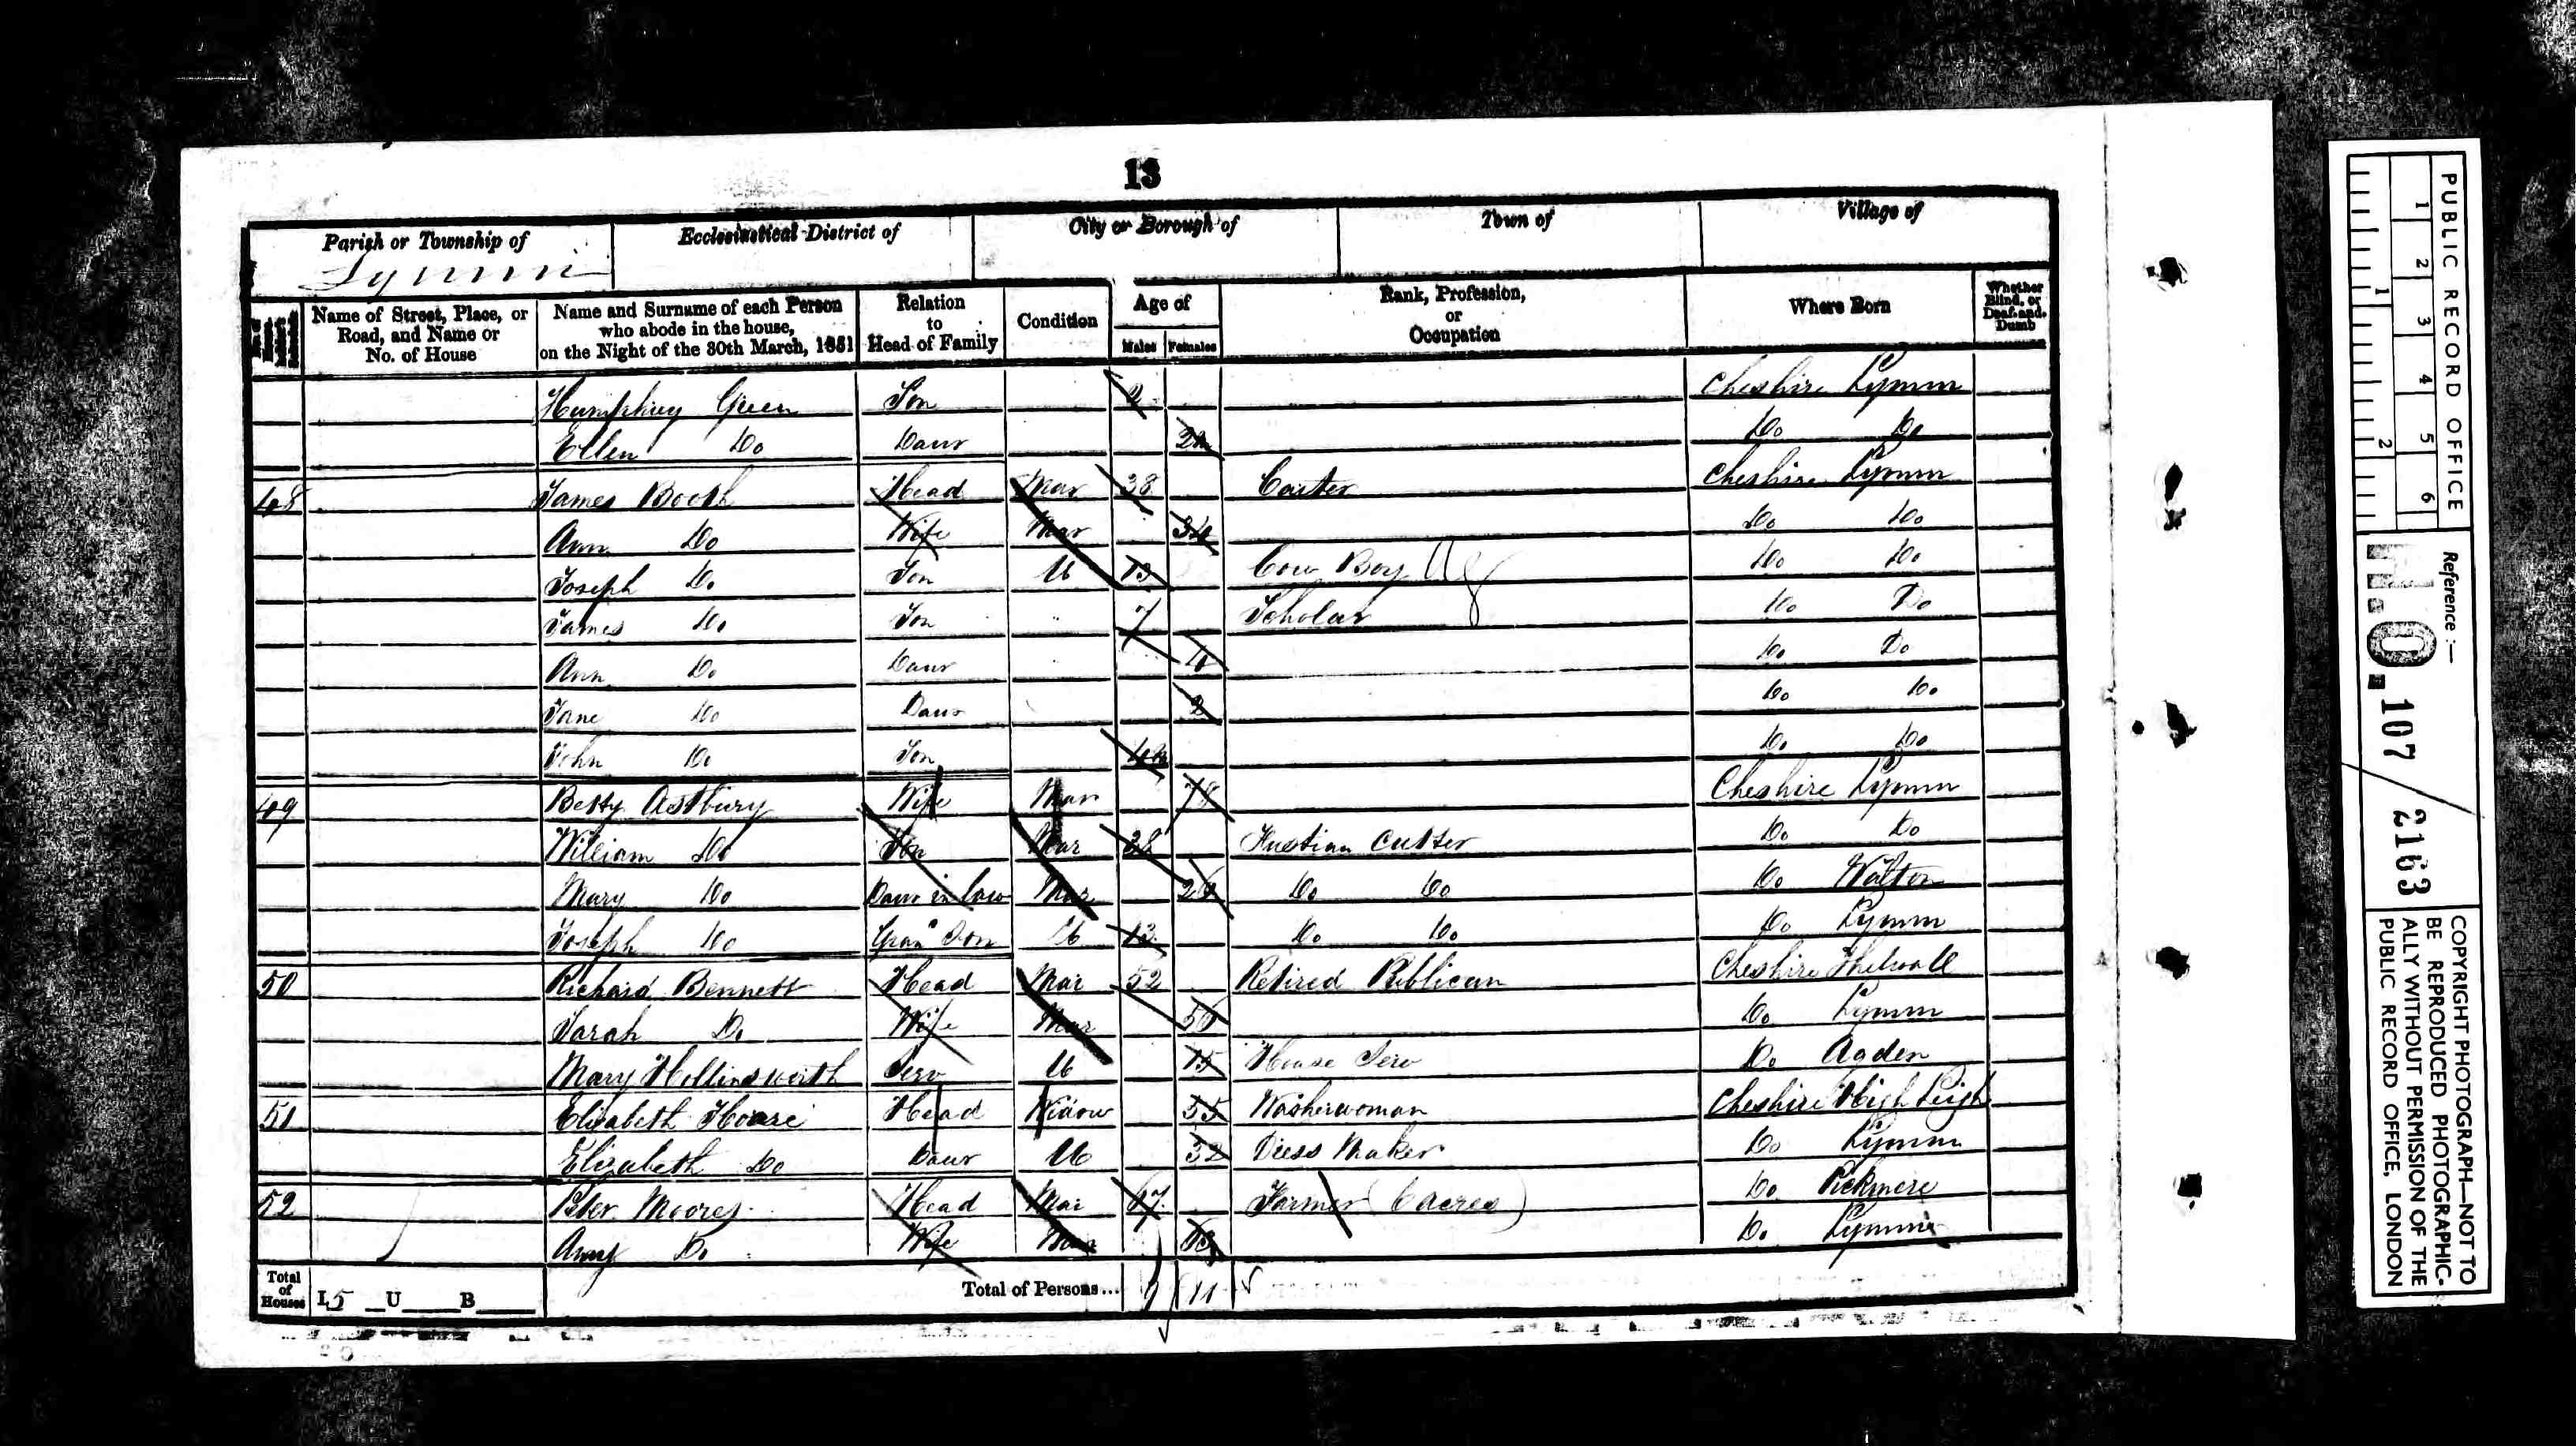 13
Parish or Township of
Ecclesiastical District of
City or Borough of
Town of
Village of
Lymm
Name of Street, Place, or Road, and Name or No. of House
Name and Surname of each Person who abode in the house, on the Night of the 30th March, 1851
Relation to Head of Family
Condition
Age of
Males
Females
Rank, Profession, or Occupation
Where Born
Whether Blind, or Deaf-and-Dumb
Humphrey Green Son 2 Cheshire Lymm
Ellen Do Daur 2m Do Do
48 James Booth Head Mar 38 Carter Cheshire Lymm
Ann Do Wife Mar 34 Do Do
Joseph Do Son U 13 Cow Boy Ag Do Do
James Do Son 7 Scholar Do Do
Ann Do Daur 4 Do Do
Jane Do Daur 2 Do Do
John Do Son 4m Do Do
49 Betty Astbury Wife Mar 78 Cheshire Lymm
William Do Son Mar 28 Fustian Cutter Do Do
Mary Do Daur in Law Mar 26 Do Do Do Walton
Joseph Do Gran Son U 13 Do Do Do Lymm
50 Richard Bennett Head Mar 52 Retired Publican Cheshire Thelwall
Sarah Do Wife Mar Do Lymm
Mary Hollinsworth Serv U 15 House Serv Do Agden
51 Elisabeth Hoare Head Widow 55 Washerwoman Cheshire High Leigh
Elizabeth Do Daur U 32 Dress Maker Do Lymm
52 Peter Moores Head Mar 67 Farmer (6 acres) Do Pickmere
Amy Do Wife Mar Do Lymm
Total of Houses I 5 U B
Total of Persons... 9 11
PUBLIC RECORD OFFICE
1 2 3 4 5 6
1 2
Reference :—
H.O. 107 / 2163
COPYRIGHT PHOTOGRAPH—NOT TO
BE REPRODUCED PHOTOGRAPHIC-
ALLY WITHOUT PERMISSION OF THE
PUBLIC RECORD OFFICE, LONDON